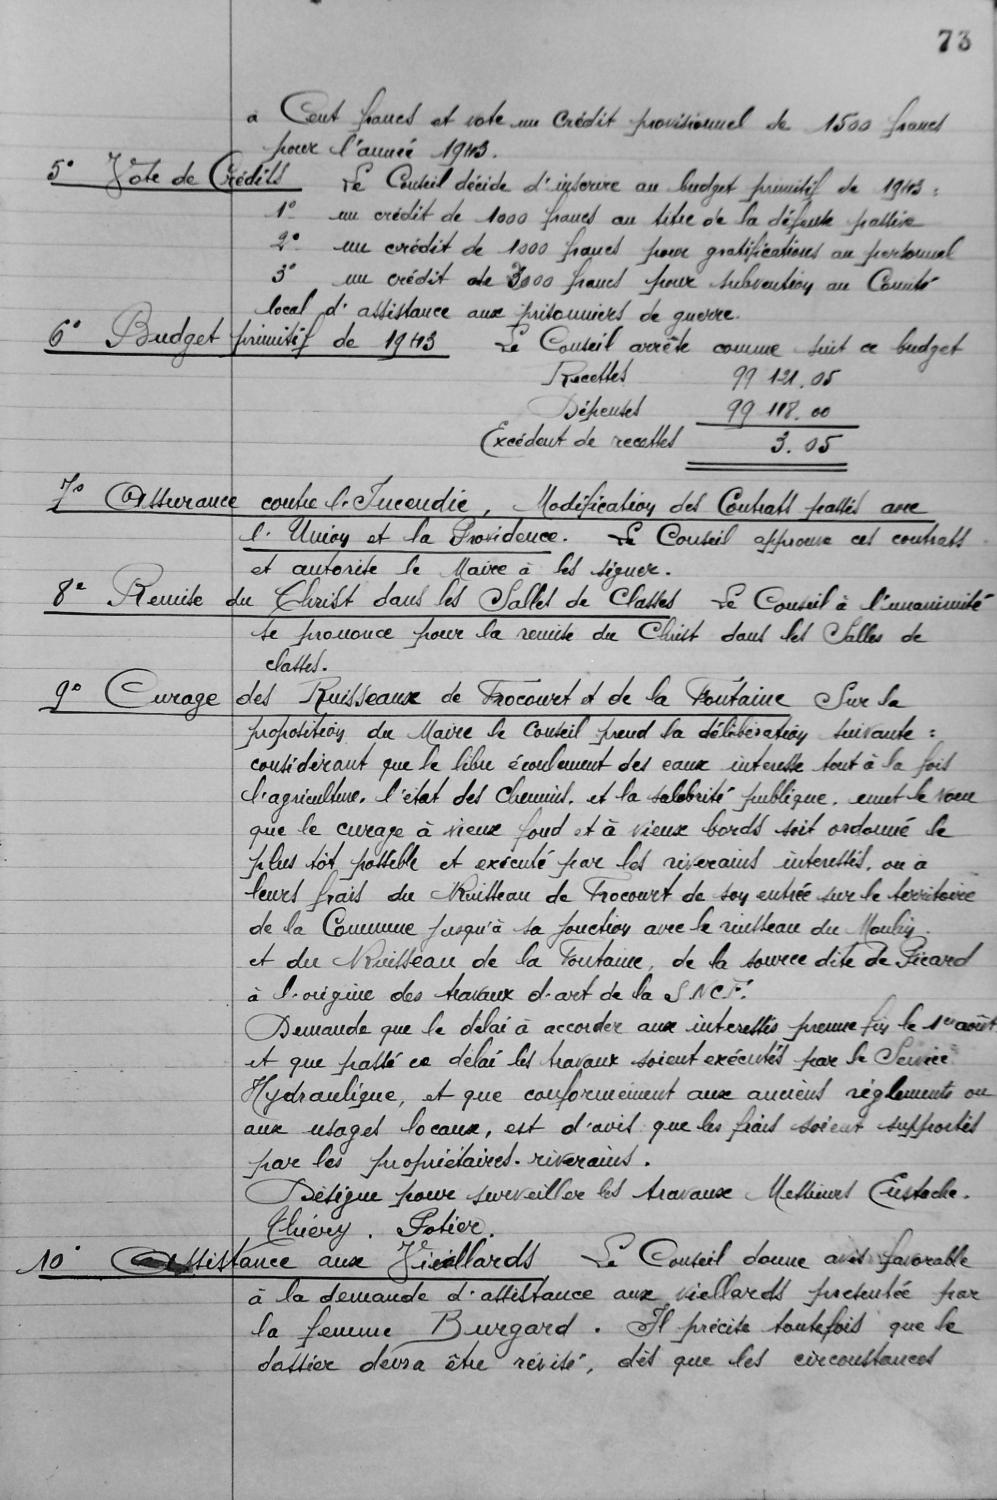 73
à Cent francs et vote un Crédit provisionnel de 1500 francs
pour l'année 1943.
5° Vote de Crédits Le Conseil décide d'inscrire au budget primitif de 1943 :
1° un crédit de 1000 francs au titre de la défense passive
2° un crédit de 1000 francs pour gratifications au personnel
3° un crédit de 3000 francs pour subvention au Comité
local d'assistance aux prisonniers de guerre.
6° Budget primitif de 1943 Le Conseil arrête comme suit ce budget
Recettes 99 121.05
Dépenses 99 118.00
Excédent de recettes 3.05
7° Assurance contre l'Incendie, Modification des Contrats passés avec
l'Union et la Providence. Le Conseil approuve ces contrats
et autorise le Maire à les signer.
8e Remise du Christ dans les Salles de Classes Le Conseil à l'unanimité
se prononce pour la remise du Christ dans les Salles de
classes.
9° Curage des Ruisseaux de Frocourt et de la Fontaine Sur la
proposition du Maire le Conseil prend la délibération suivante :
considérant que le libre écoulement des eaux interesse tout à la fois
l'agriculture, l'état des chemins, et la salubrité publique, emet le voeu
que le curage à vieux fond et à vieux bords soit ordonné le
plus tôt possible et exécuté par les riverains interessés, ou à
leurs frais du Ruisseau de Frocourt de son entrée sur le territoire
de la Commune jusqu'à sa jonction avec le ruisseau du Moulin.
et du Ruisseau de la Fontaine, de la source dite de Picard
à l'origine des travaux d'art de la S.N.C.F.
Demande que le délai à accorder aux interessés prenne fin le 1er août
et que passé ce délai les travaux soient exécutés par le Service
Hydraulique, et que conformément aux anciens réglements ou
aux usages locaux, est d'avis que les frais soient supportés
par les propriétaires-riverains.
Désigne pour surveiller les travaux Messieurs Eustache.
Thiéry. Potier.
10° Assistance aux Vieillards Le Conseil donne avis favorable
à la demande d'assistance aux viellards presentée par
la femme Burgard. Il précise toutefois que le
dossier devra être révisé, dès que les circonstances